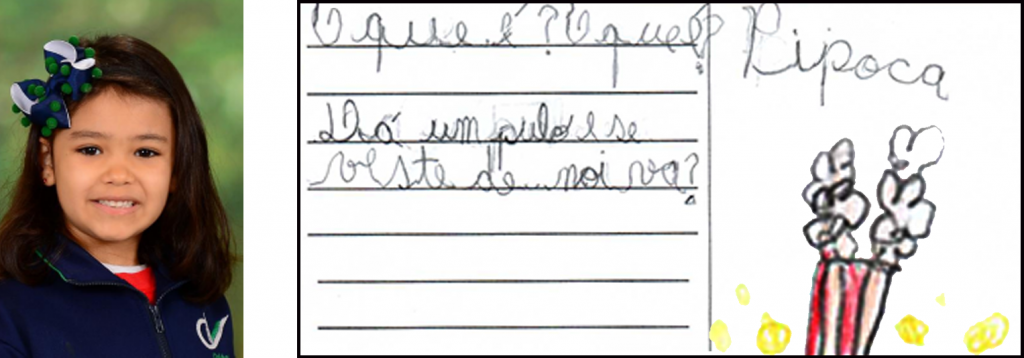 O que é? O que é?
Dá um pulo e se
veste de noiva?
Pipoca